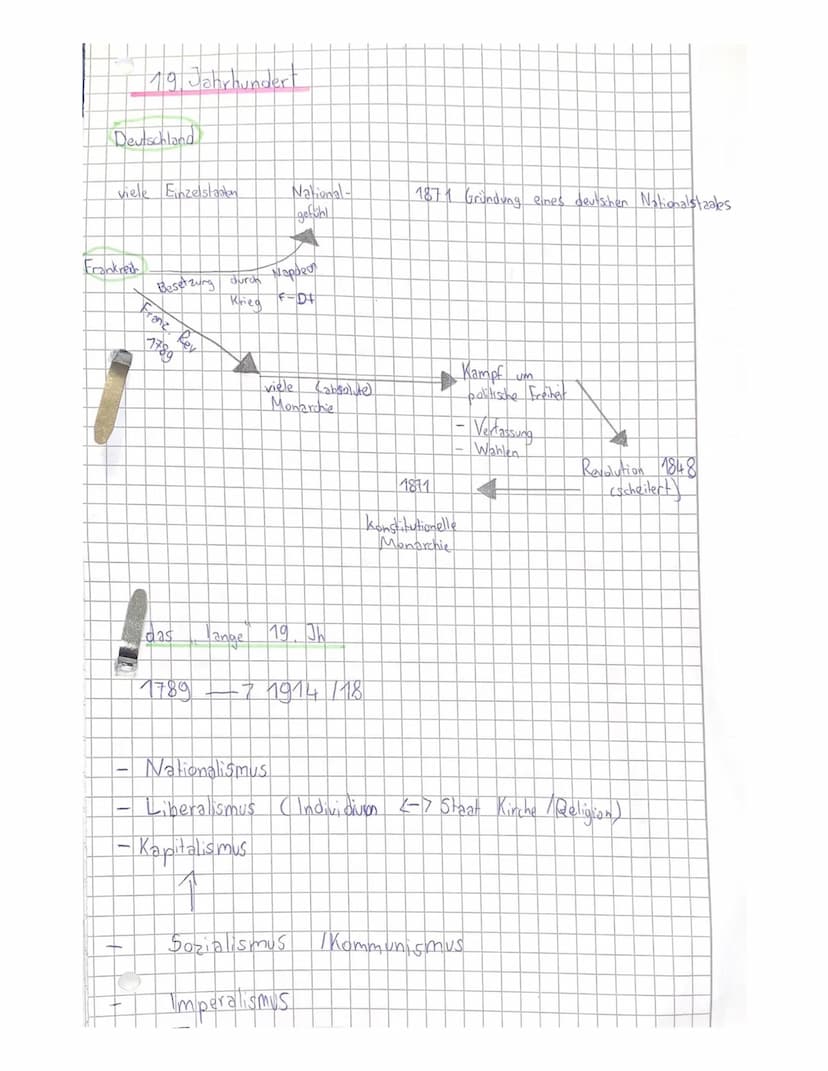 19. Jahrhundert
Deutschland
viele Einzelstaaten
National-
gefühl
1871 Gründung eines deutschen Nationalstaates
Frankreich
Besetzung durch Napoleon
Krieg F-Dt
Franz. Rev
1789
viele (absolute)
Monarchie
Kampf um
politische Freiheit
- Verfassung
- Wahlen
Revolution 1848
(scheitert)
1871
Konstitutionelle
Monarchie
das „lange" 19. Jh
1789 —> 1914/18
- Nationalismus
- Liberalismus (Individium <-> Staat Kirche /Religion)
- Kapitalismus
- Sozialismus /Kommunismus
- Imperalismus